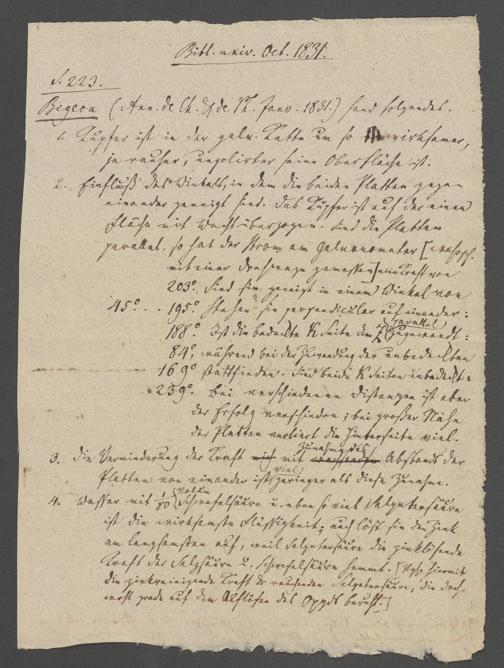 Bibl. univ. Oct. 1831.
S. 223.
Bigeon (Ann. de Ch. & de Ph. Janv. 1831.) fand folgendes.
1. Kupfer ist in der galv. Kette um so wirksamer,
je rauher, unpolirter seine Oberfläche ist.
2. Einfluß des Winkels, in dem die beiden Platten gegen
einander geneigt sind. Das Kupfer ist auf der einen
Fläche mit Wachs überzogen. Sind die Platten
parallel, so hat der Strom am Galvanometer [
mit einer Drehwage gemessen] eine Kraft von
203°. Sind sie geneigt in einem Winkel von
45° . . 195°. Stehen sie perpendiculär auf einander:
188°. Ist die bedeckte K. Seite dem Z parallel zugewandt:
84°, während bei der Zuwendung der unbedeckten
169° stattfinden. Sind beide K. Seiten unbedeckt:
259°. Bei verschiedenen Distanzen ist aber
der Erfolg verschieden; bei großer Nähe
der Platten verliert die Hinterseite viel.
3. Die Verminderung der Kraft mit Zunahme des Abstands der
Platten von einander ist viel geringer als diese Zunahme.
4. Wasser mit 1/50 Volum Schwefelsäure u. eben so viel Salpetersäure
ist die wirksamste Flüssigkeit; auch löst sie den Zink
am langsamsten auf, weil Salpetersäure die zinklösende
Kraft der Salzsäure u. Schwefelsäure hemmt. [Vgl. hiermit
die zinkreinigende Kraft der rauchenden Salpetersäure, die doch
wohl grade auf dem Auflösen des Oxyds beruht.]